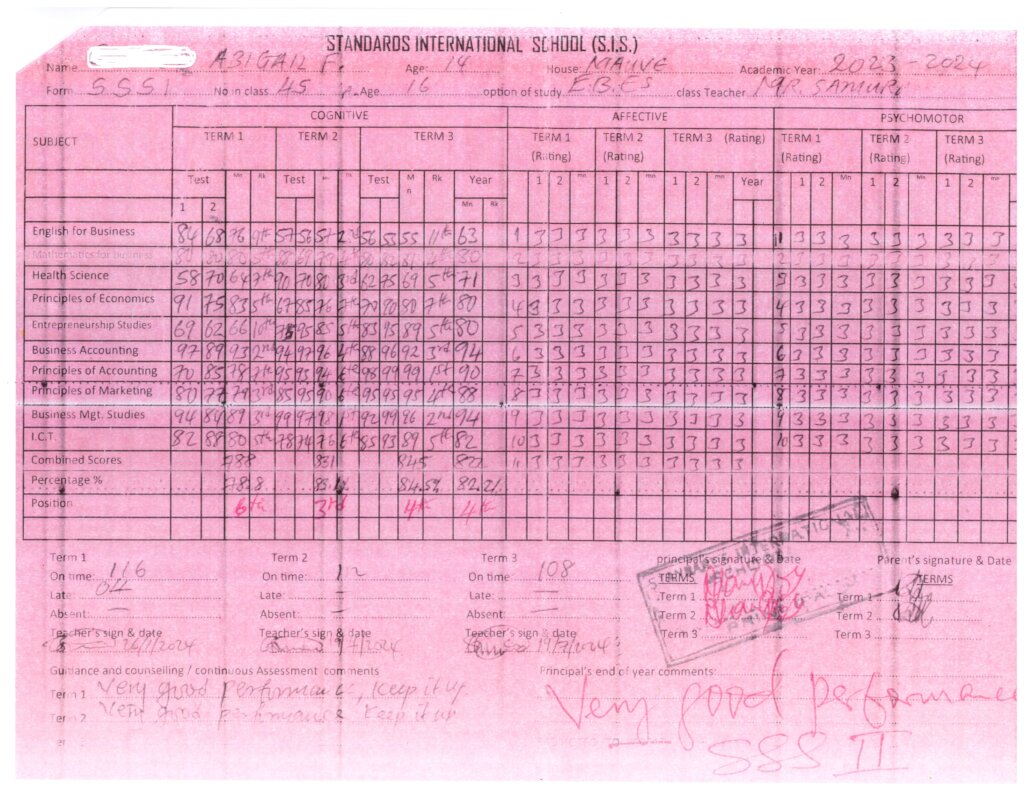 STANDARDS INTERNATIONAL SCHOOL (S.I.S.)
Name ABIGAIL F. Age: 14 House: MAUVE Academic Year: 2023-2024
Form S.S.S 1 No in class 45 A.Age 16 option of study E.B.E.S class Teacher MR. SAMURA
SUBJECT COGNITIVE AFFECTIVE PSYCHOMOTOR
TERM 1 TERM 2 TERM 3 TERM 1 (Rating) TERM 2 (Rating) TERM 3 (Rating) TERM 1 (Rating) TERM 2 (Rating) TERM 3 (Rating)
Test Mn Rk Test Test Mn Rk Year 1 2 mn 1 2 mn 1 2 mn Year 1 2 Mn 1 2 Mn 1 2 mn
1 2 Mn Rk
English for Business 84 68 76 9th 57 56 57 2nd 56 53 55 11th 63 1 3 3 3 3 3 3 3 3 3 3 3 3 3 3 3 3 3 3 3
Mathematics for business
Health Science 58 70 64 7th 90 70 80 3rd 62 75 69 5th 71 3 3 3 3 3 3 3 3 3 3 3 3 3 3 3 3 3 3 3 3
Principles of Economics 91 75 83 5th 67 85 76 7th 70 90 80 7th 80 4 3 3 3 3 3 3 3 3 3 3 4 3 3 3 3 3 3 3 3 3
Entrepreneurship Studies 69 62 66 10th 75 95 85 5th 83 95 89 5th 80 5 3 3 3 3 3 3 3 3 3 3 5 3 3 3 3 3 3 3 3 3
Business Accounting 97 89 93 2nd 94 97 96 4th 88 96 92 3rd 94 6 3 3 3 3 3 3 3 3 3 3 6 3 3 3 3 3 3 3 3 3
Principles of Accounting 70 85 78 2th 95 93 94 6th 98 99 99 1st 90 3 3 3 3 3 3 3 3 3 3 7 3 3 3 3 3 3 3 3
Principles of Marketing 80 77 79 3rd 85 95 90 6 95 95 95 4th 88 8 3 3 3 3 3 3 3 3 3 3 8 3 3 3 3 3 3 3 3 3
Business Mgt. Studies 94 84 89 3rd 99 97 98 1st 92 99 96 2nd 94 9 3 3 3 3 3 3 3 3 3 3 9 3 3 3 3 3 3 3 3 3
I.C.T. 82 88 80 5th 78 74 76 6th 85 93 89 5th 82 10 3 3 3 3 3 3 3 3 3 3 10 3 3 3 3 3 3 3 3 3
Combined Scores 788 831 845 822 11 3 3 3 3 3 3 3 3 3 3
Percentage % 78.8 84.5% 82.2%
Position 6th 3rd 4th 4th
Term 1 Term 2 Term 3 principal's signature & Date Parent's signature & Date
On time: 116 On time: On time: 108 TERMS TERMS
Late: 04 Late: – Late: – Term 1 Term 1
Absent: – Absent: – Absent: – Term 2 Term 2
Teacher's sign & date Teacher's sign & date Teacher's sign & date Term 3 Term 3
Guidance and counselling / continuous Assessment comments Principal's end of year comments:
Term 1 Very good performance, keep it up
Term 2 Very good performance keep it up
Very good performance
SSS II